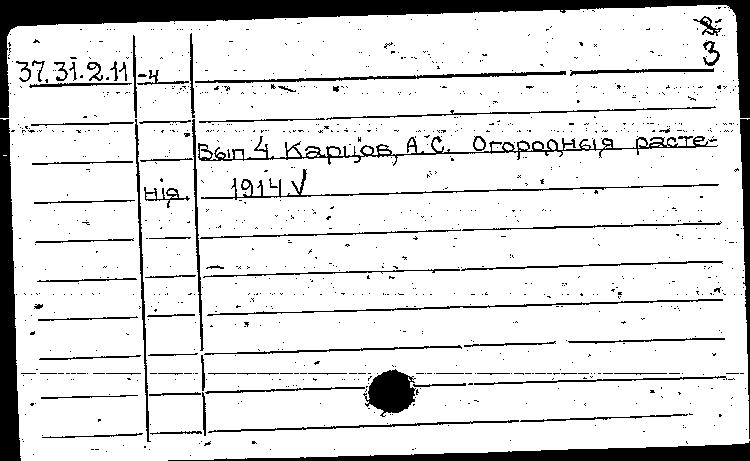 3
37.31.2.11 -4
Вып 4. Карцов, А.С. Огородныя расте-
нiя. 1914.V